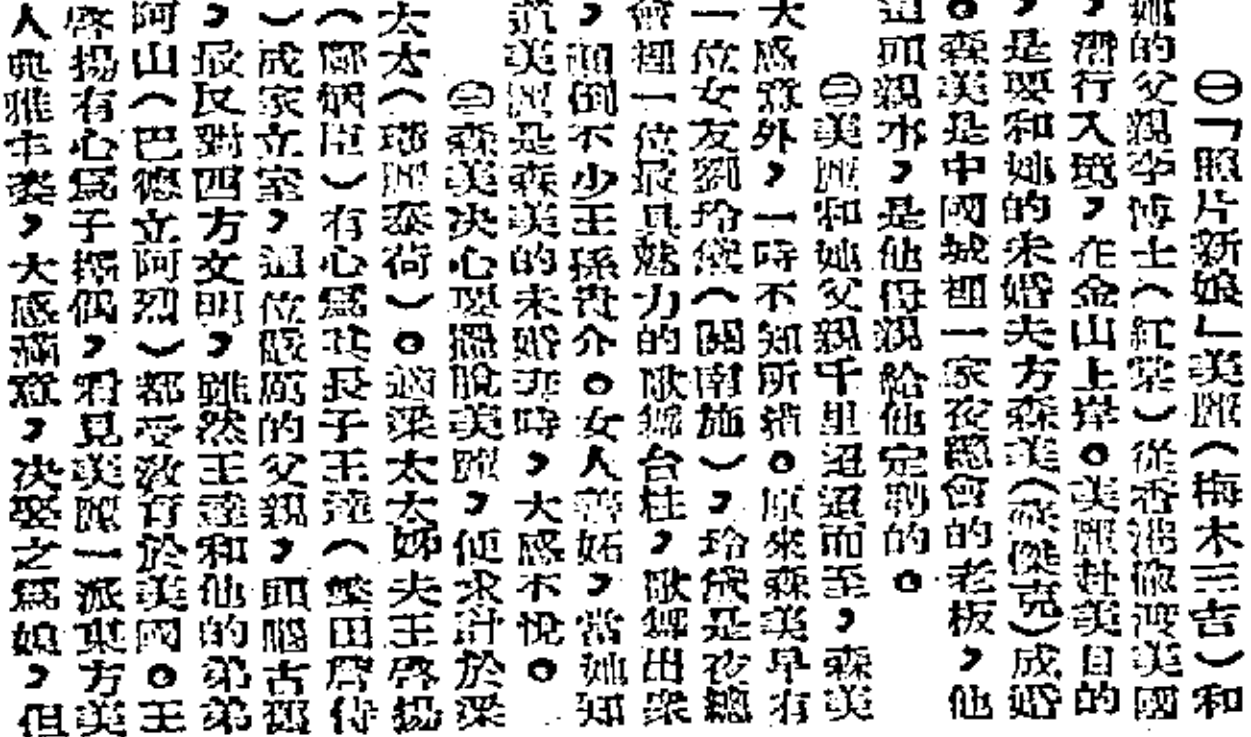 ㊀「照片新娘」美麗（梅木三吉）和
她的父親李博士（紅棠）從香港偷渡美國
，潛行入境，在金山上岸。美麗赴美目的
，是要和她的未婚夫方森美（派傑克）成婚
。森美是中國城裡一家夜總會的老板，他
這頭親事，是他母親給他定的。
㊁美麗和她父親千里迢迢而至，森美
大感意外，一時不知所措。原來森美早有
一位女友劉玲黛（關南施），玲黛是夜總
會裡一位最具魅力的歌舞台柱，歌舞出衆
，顛倒不少王孫貴介。女人善妬，當她知
道美麗是森美的未婚妻時，大感不悅。
㊂森美决心要擺脫美麗，便求計於梁
太太（瓊麗泰荷）。適梁太太姊夫王啓揚
（鄺炳雄）有心爲其長子王達（樂田廣侍
）成家立室，這位嚴厲的父親，頭腦古舊
，最反對西方文明，雖然王達和他的弟弟
阿山（巴德立阿烈）都受敎育於美國。王
啓揚有心爲子擇偶，看見美麗一派東方美
人典雅丰姿，大感滿意，决娶之爲媳，但